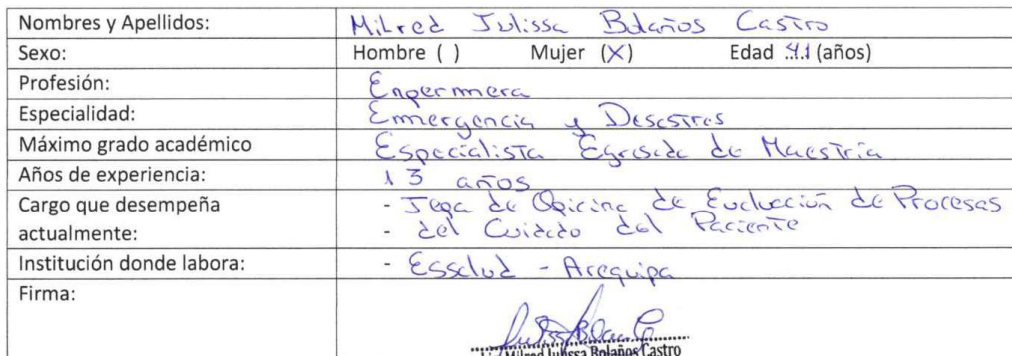 Nombres y Apellidos: Milred Julissa Bolaños Castro
Sexo: Hombre ( ) Mujer (X) Edad 41 (años)
Profesión: Enfermera
Especialidad: Emmergencia y Desastres
Máximo grado académico Especialista Egresada de Maestría
Años de experiencia: 13 años
Cargo que desempeña - Jefa de Oficina de Evaluación de Procesos
actualmente: - del Cuidado del Paciente
Institución donde labora: - Essalud - Arequipa
Firma:
Milred Julissa Bolaños Castro